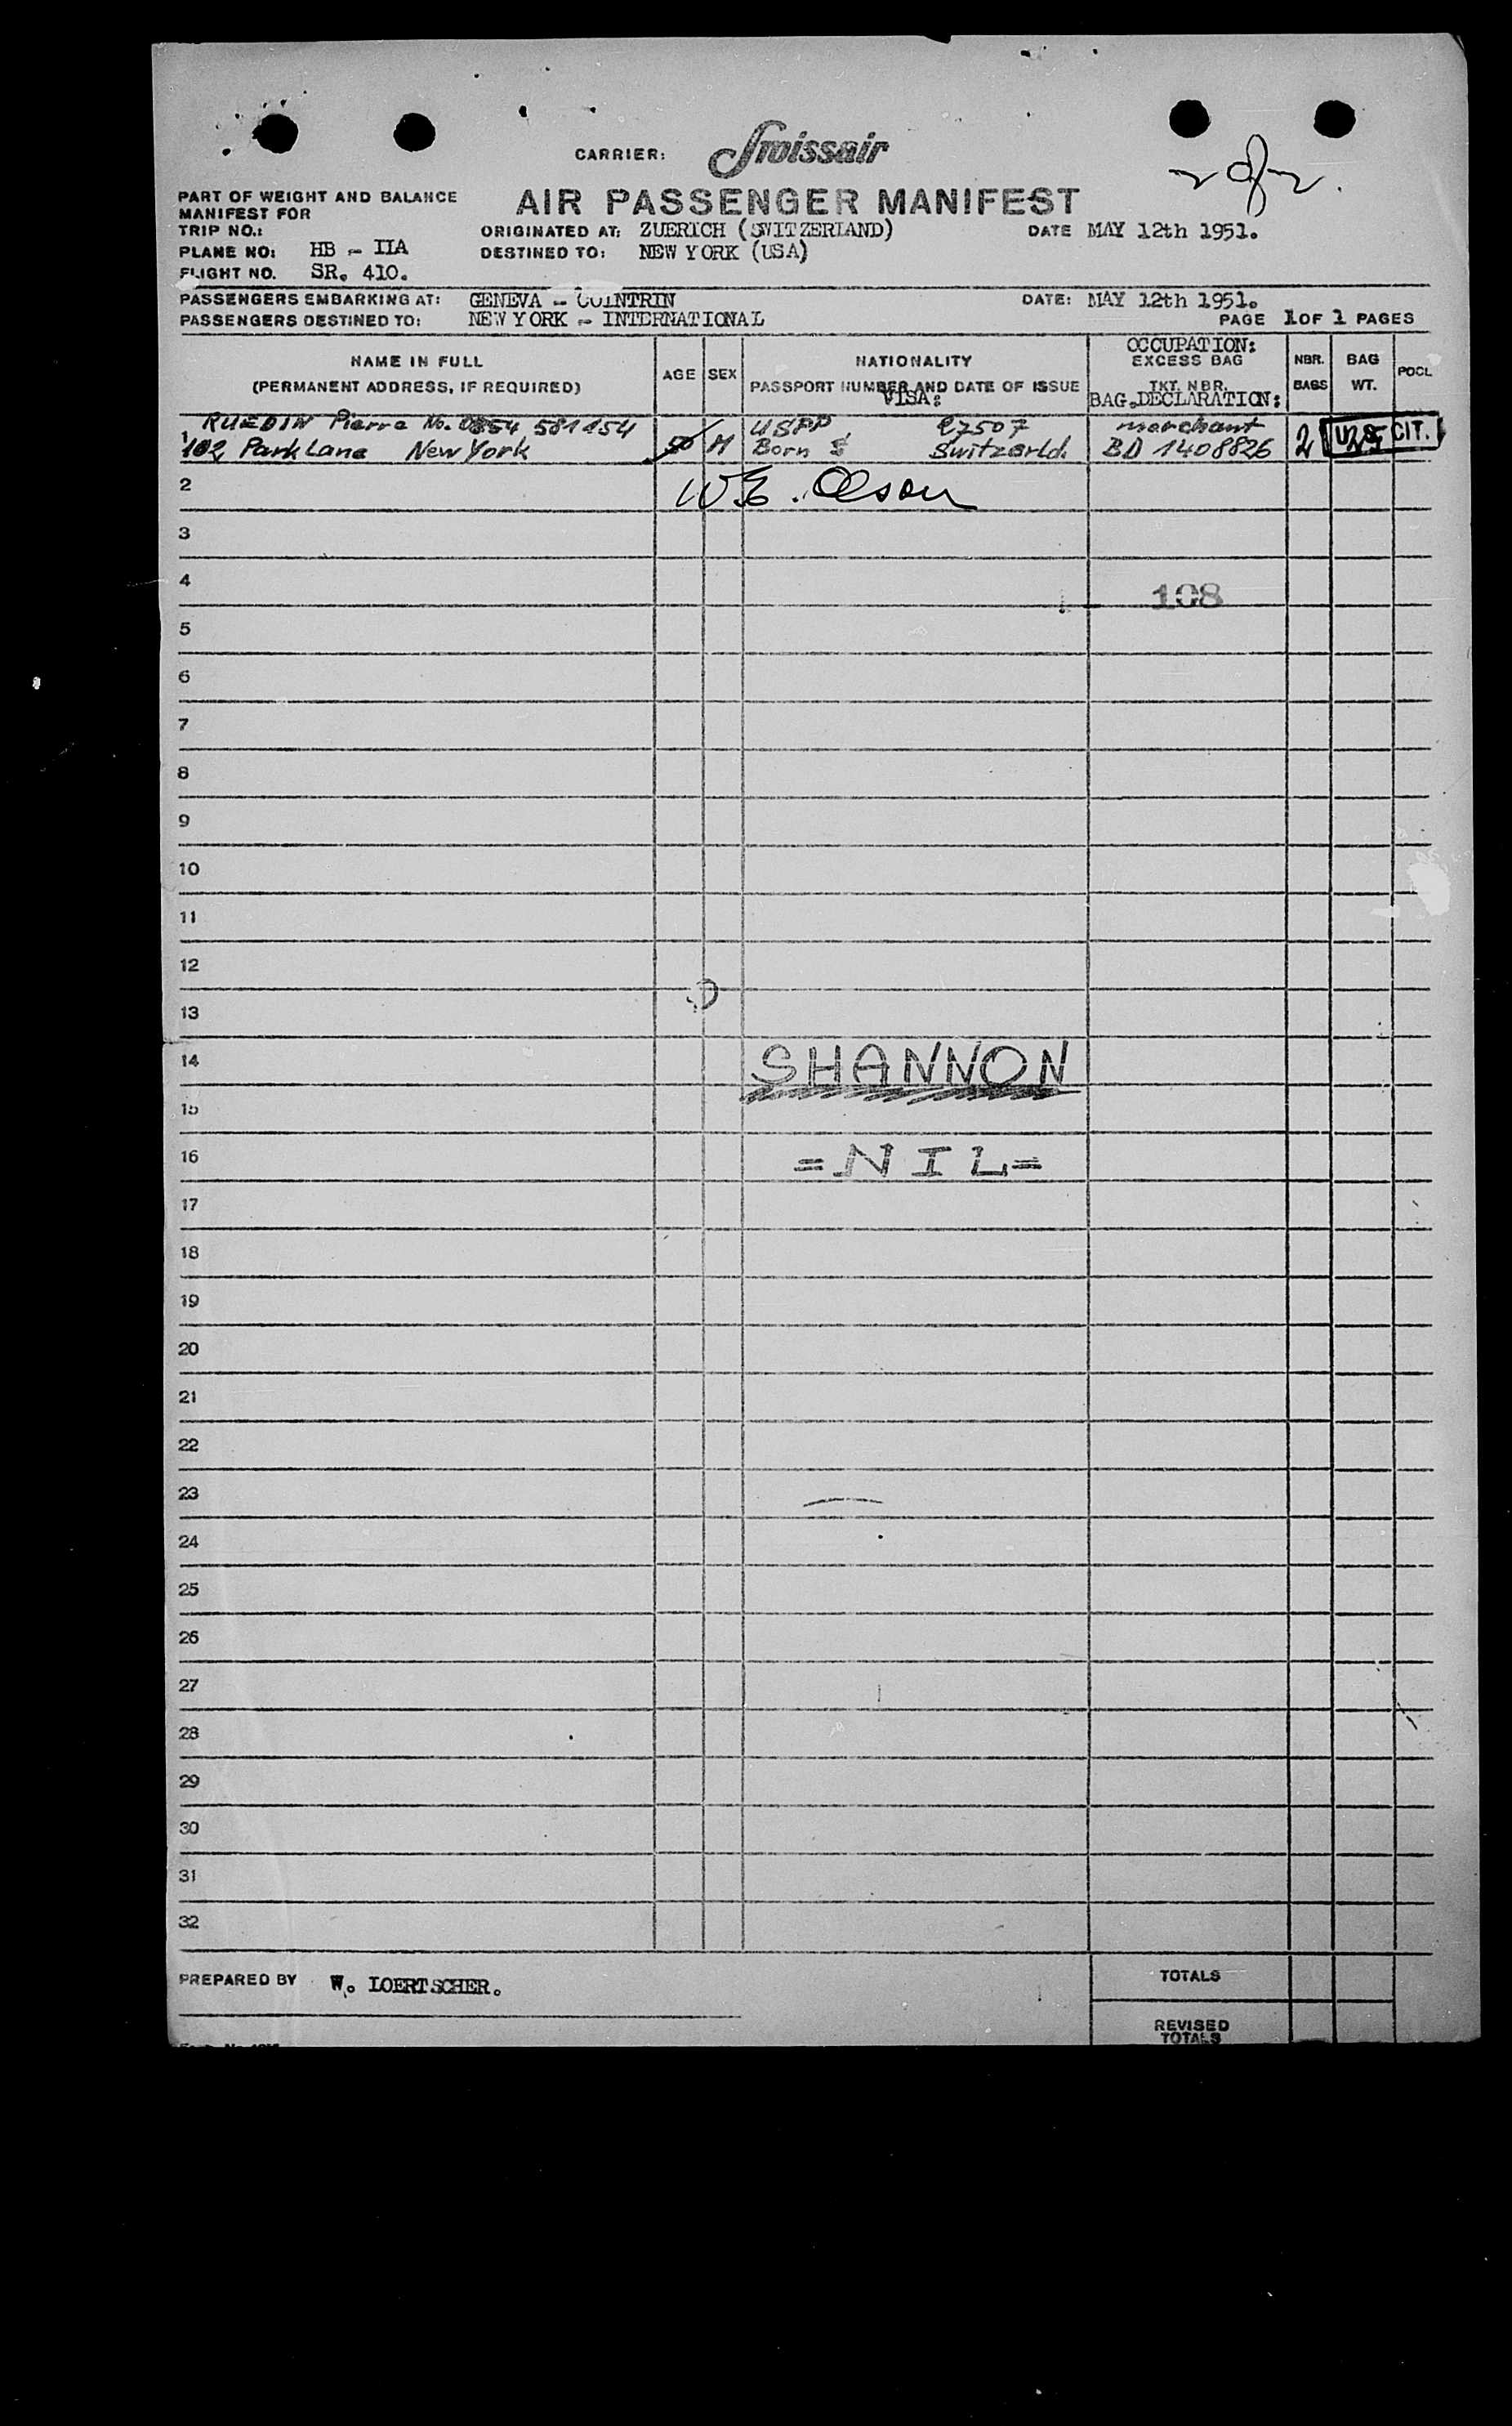 CARRIER: Swissair
2 of 2.
AIR PASSENGER MANIFEST
PART OF WEIGHT AND BALANCE
MANIFEST FOR
TRIP NO.:
ORIGINATED AT: ZUERICH (SWITZERLAND) DATE MAY 12th 1951.
PLANE NO: HB - IIA DESTINED TO: NEW YORK (USA)
FLIGHT NO. SR. 410.
PASSENGERS EMBARKING AT: GENEVA - COINTRIN DATE: MAY 12th 1951.
PASSENGERS DESTINED TO: NEW YORK - INTERNATIONAL PAGE 1 OF 1 PAGES
NAME IN FULL
(PERMANENT ADDRESS, IF REQUIRED)
AGE
SEX
NATIONALITY
PASSPORT NUMBER AND DATE OF ISSUE
VISA:
OCCUPATION:
EXCESS BAG
TKT. NBR.
BAG.DECLARATION:
NBR.
BAGS
BAG
WT.
POCL
RUEDIN Pierre No. 0854 581154 USPP 27507 merchant
1 102 Park Lane New York 50 M Born Switzerld. BD 1408826 2 U.S. CIT.
2 W E. Olson
3
4 108
5
6
7
8
9
10
11
12
13
14 SHANNON
15
16 =NIL=
17
18
19
20
21
22
23
24
25
26
27
28
29
30
31
32
PREPARED BY W. LOERTSCHER. TOTALS
REVISED
TOTALS